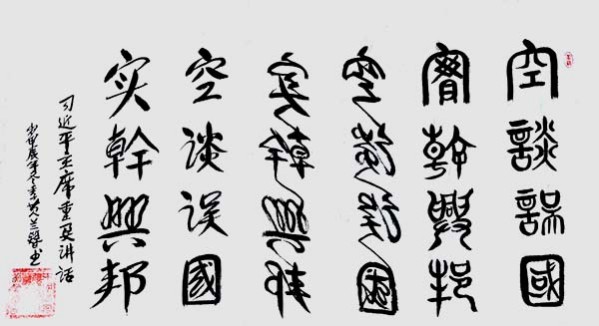 空談誤國
實幹興邦
空談誤國
實幹興邦
空谈误國
实幹興邦
习近平主席重要讲话
书